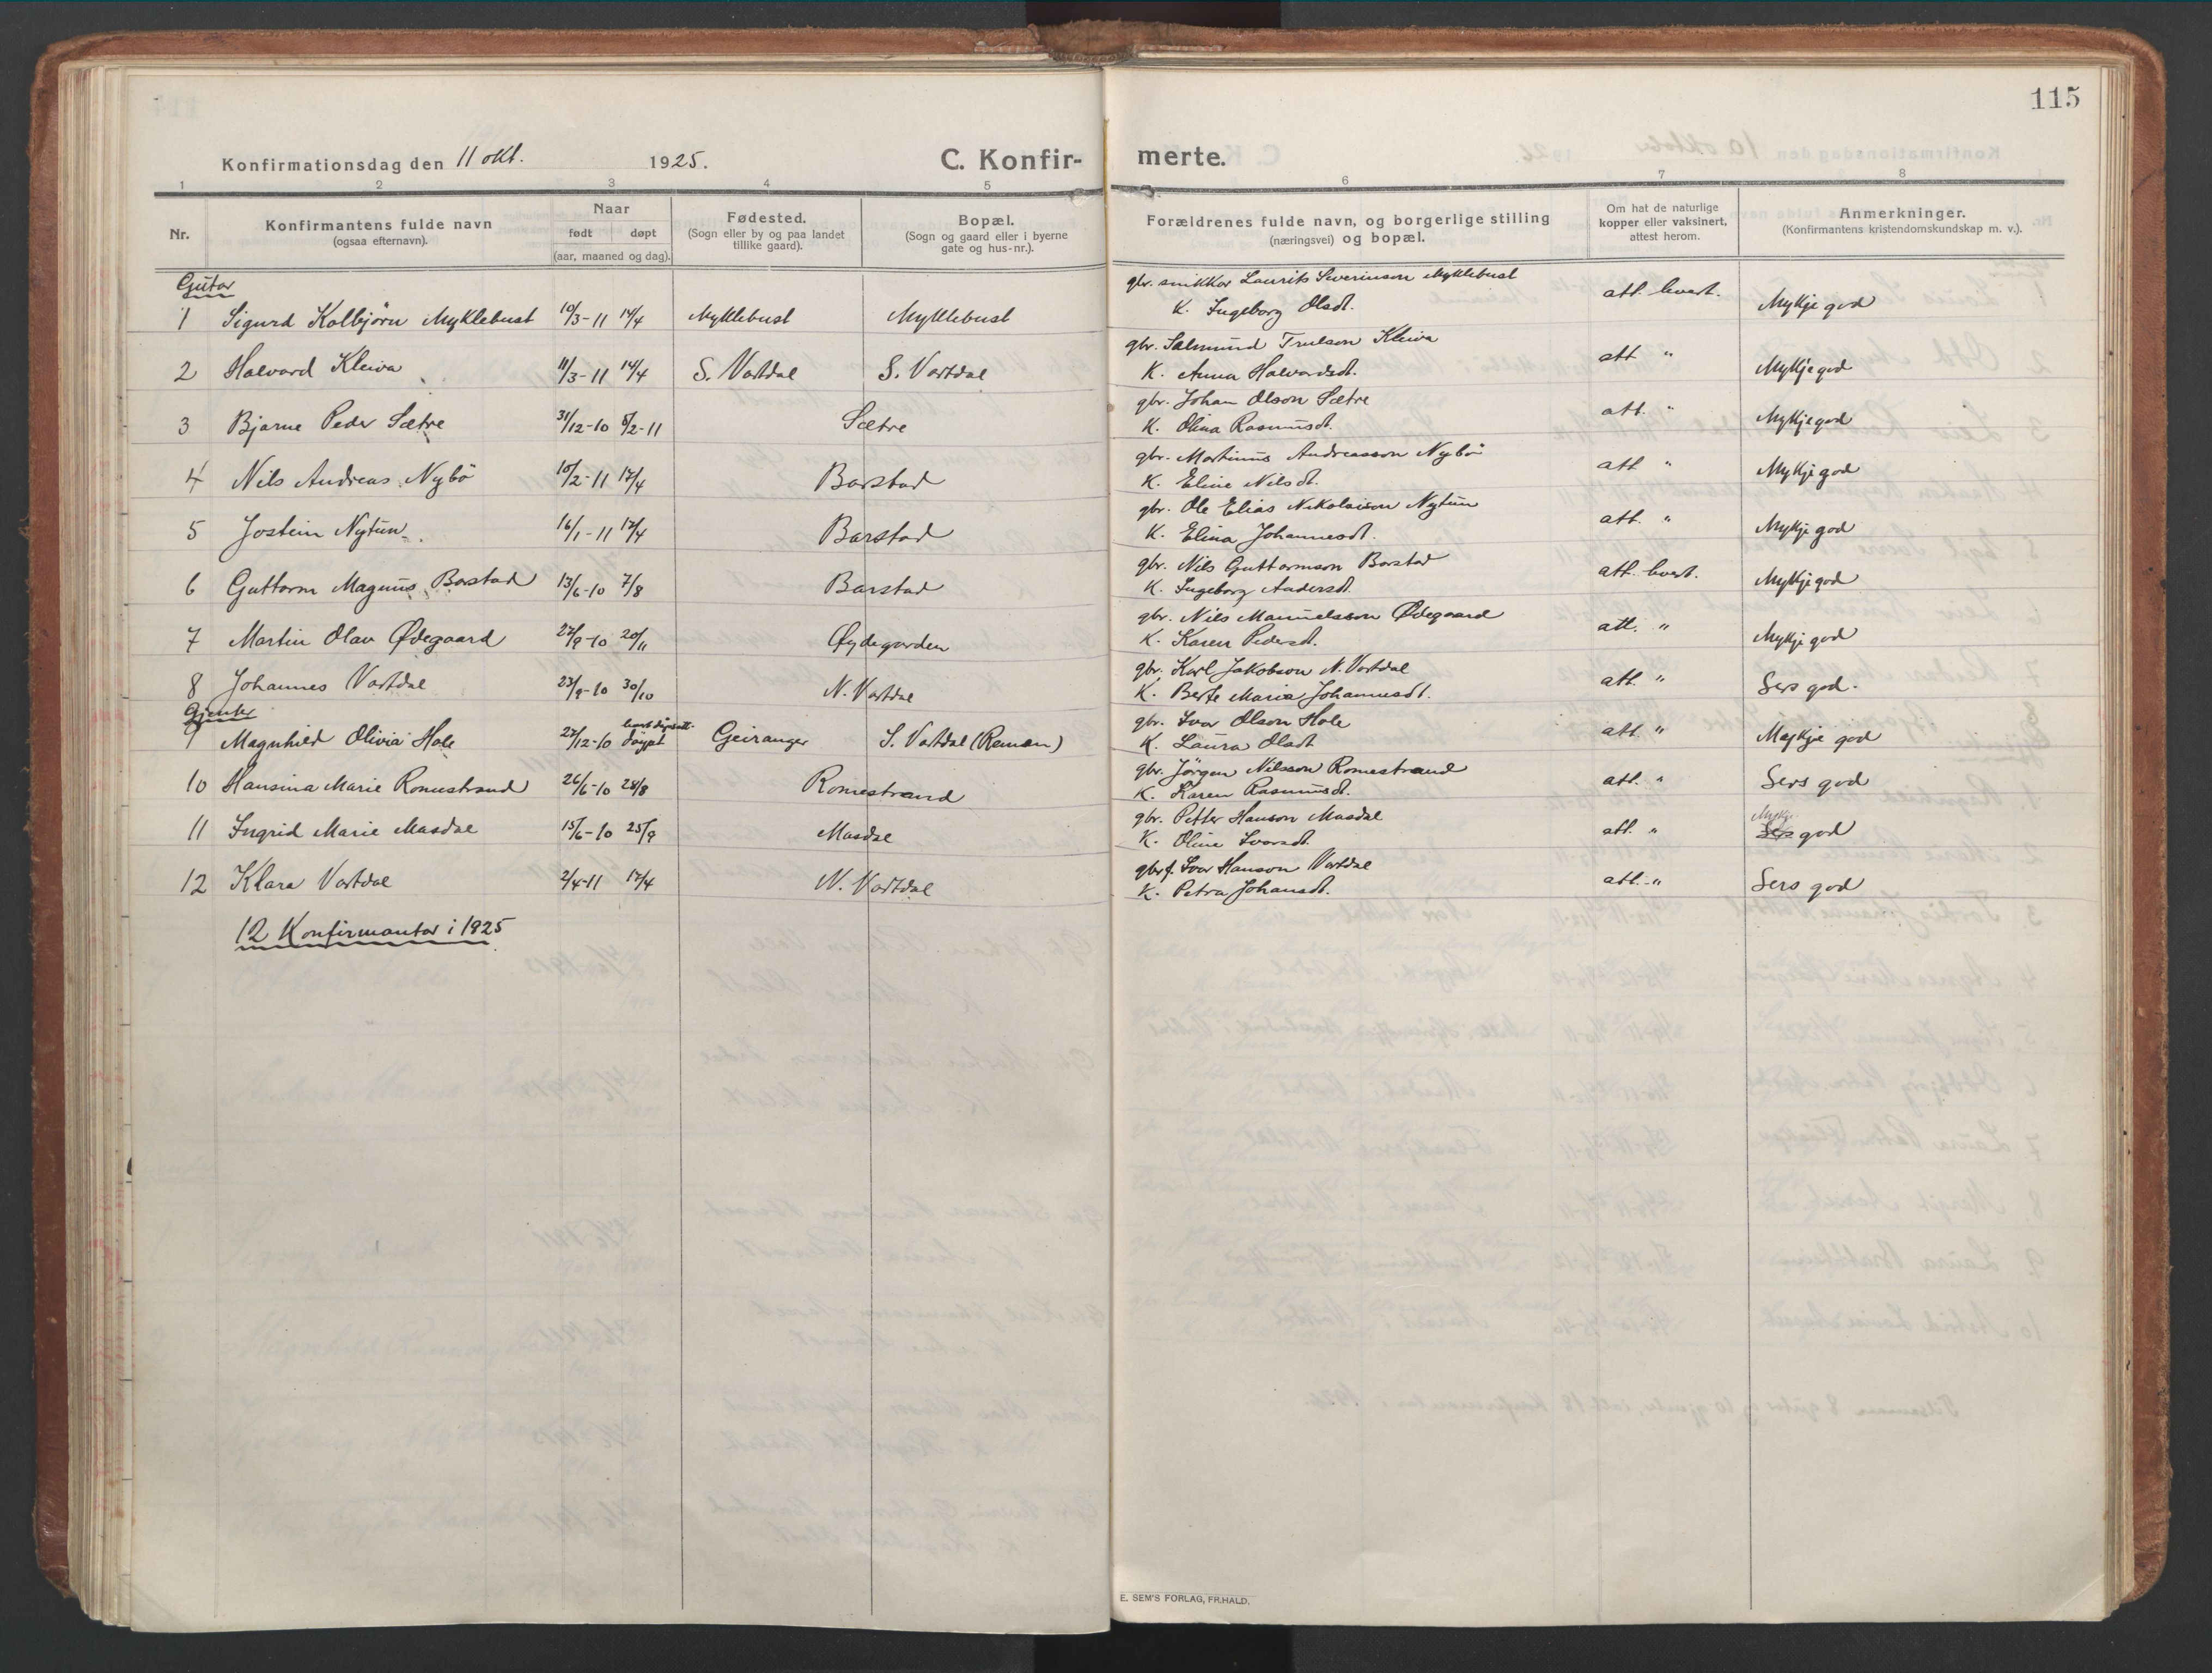 115
Konfirmationsdag den 11 okt. 1925.
C. Konfir-
merte.
1 2 3 4 5 6 7 8
Nr.
Konfirmantens fulde navn
(ogsaa efternavn).
Naar
født døpt
(aar, maaned og dag).
Fødested.
(Sogn eller by og paa landet
tillike gaard).
Bopæl.
(Sogn og gaard eller i byerne
gate og hus-nr.).
Forældrenes fulde navn, og borgerlige stilling
(næringsvei) og bopæl.
Om hat de naturlige
kopper eller vaksinert,
attest herom.
Anmerkninger.
(Konfirmantens kristendomskundskap m. v.).
Gutar
1 Sigurd Kolbjörn Myklebust 10/3-11 14/4 Myklebust Myklebust gbr. snikkar Laurits Severinson Myklebust att. hvert. Mykje god
K. Ingeborg Olsdt.
2 Halvard Kleiva 11/3-11 14/4 S. Vartdal S. Vartdal gbr. Salmund Trulson Kleiva att " Mykje god
K. Anna Halvardsdt.
3 Bjarne Peder Sætre 31/12-10 5/2-11 Sætre gbr. Johan Olson Sætre att. " Mykje god
K. Olina Rasmusdt.
4 Nils Andreas Nybö 10/2-11 17/4 Barstad gbr. Martinus Andreasson Nybö att " Mykje god
K. Eline Nilsdt.
5 Jostein Nytun 16/1-11 17/4 Barstad gbr. Ole Elias Nikolaison Nytun att. " Mykje god
K. Elina Johannesdt.
6 Guttorm Magnus Barstad 13/6-10 7/8 Barstad gbr. Nils Guttormson Barstad att. hvert. Mykje god
K. Ingeborg Andersdt.
7 Martin Olav Ødegaard 27/9-10 20/11 Øydegarden gbr. Nils Manuelsson Ødegaard att. " Mykje god
K. Karen Pedersdt.
8 Johannes Vartdal 23/9-10 30/10 N. Vartdal gbr. Karl Jakobson N. Vartdal att. " Sers god.
K. Berte Maria Johannesdt.
Gjenter
9 Magnhild Olivia Hole 27/12-10 døypt Geiranger S. Vartdal (Reman) gbr. Ivar Olson Hole att. " Mykje god
K. Laura Olsdt
10 Hansina Marie Romestrand 26/6-10 28/8 Romestrand gbr. Jörgen Nilsson Romestrand att. " Sers god
K. Karen Rasmusdt.
11 Ingrid Marie Masdal 15/6-10 25/9 Masdal gbr. Petter Hanson Masdal att. " Mykje
Sers god
K. Oline Ivarsdt.
12 Klara Vartdal 2/4-11 17/4 N. Vartdal gbrf. Ivar Hanson Vartdal att. " Sers god
K. Petra Johansdt.
12 Konfirmantar i 1925
E. SEM'S FORLAG, FR.HALD.